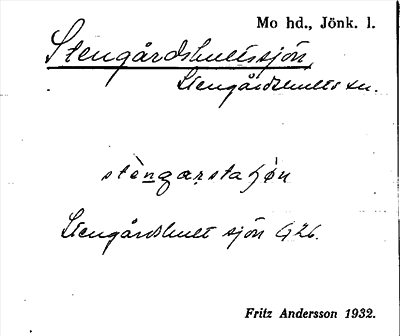 Mo hd., Jönk. l.
Stengårdshultssjön
Stengårdshults sn.
Stengårdshult sjön G 26.
Fritz Andersson 1932.